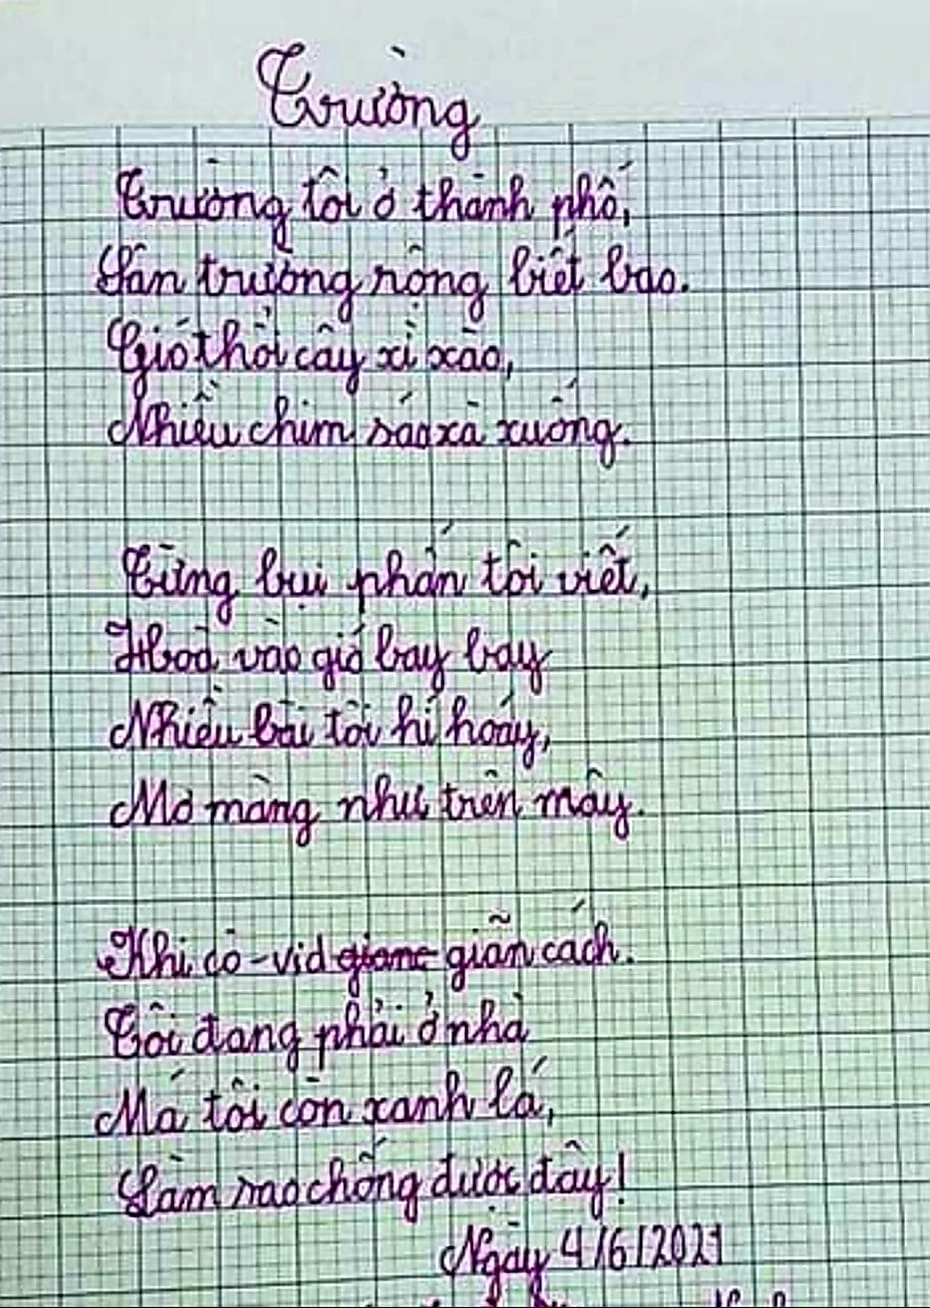 Trường
Trường tôi ở thành phố,
Sân trường rộng biết bao.
Gió thổi cây xì xào,
Nhiều chim sáo xà xuống.
Từng bụi phấn tôi viết,
Hoà vào gió bay bay
Nhiều bài tôi hí hoáy,
Mơ màng như trên mây.
Khi cô-vid giãn cách.
Tôi đang phải ở nhà
Má tôi còn xanh lá,
Làm sao chống được đây!
Ngày 4/6/2021